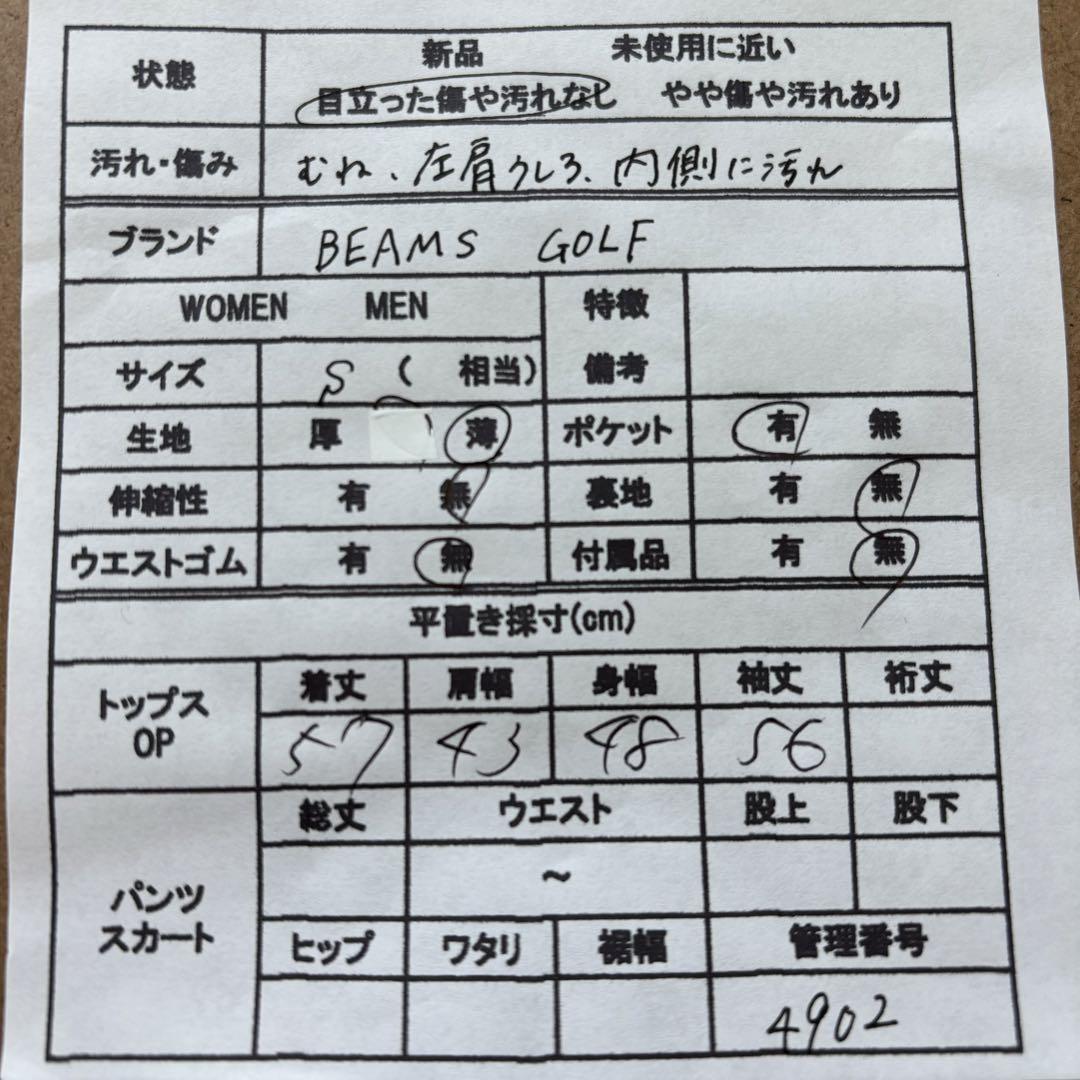 状態 新品 未使用に近い
目立った傷や汚れなし やや傷や汚れあり
汚れ・傷み むね、左肩うしろ、内側に汚れ
ブランド BEAMS GOLF
WOMEN MEN 特徴
サイズ S ( 相当) 備考
生地 厚 薄 ポケット 有 無
伸縮性 有 無 裏地 有 無
ウエストゴム 有 無 付属品 有 無
平置き採寸(cm)
トップス OP 着丈 肩幅 身幅 袖丈 裄丈
57 43 48 56
パンツ スカート 総丈 ウエスト 股上 股下
~
ヒップ ワタリ 裾幅 管理番号
4902